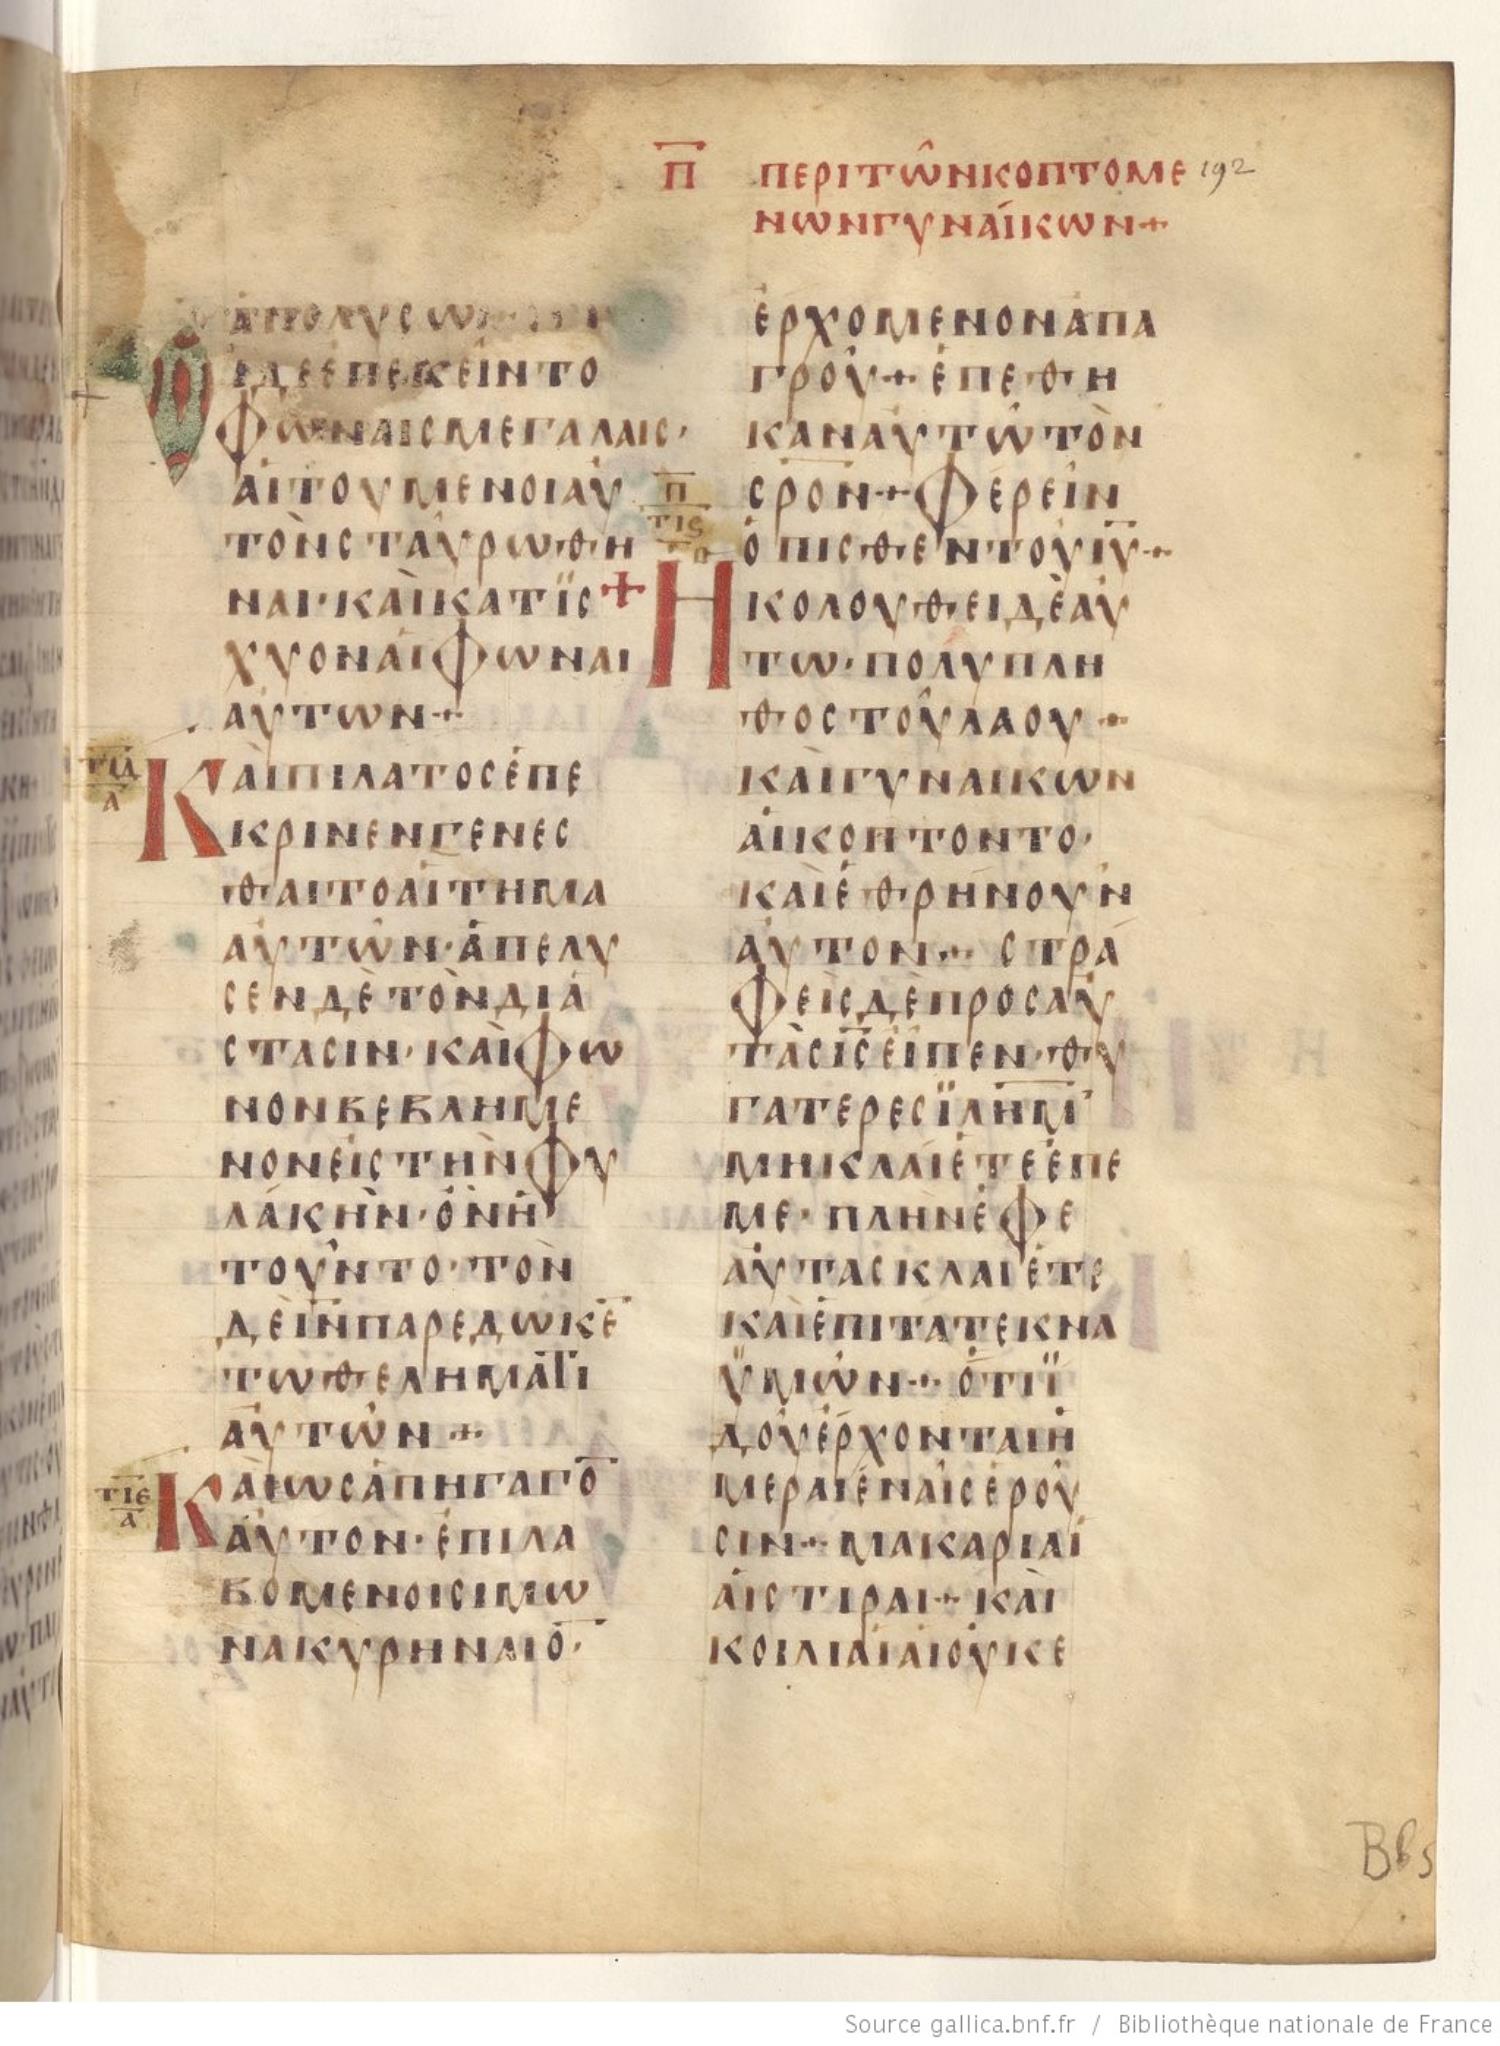 Π ΠΕΡΙΤΩ͂ΝΚΟΠΤΟΜΕ 192
ΝΩΝΓΥΝΑΊΚΩΝ+
ἈΠΟΛΥΣΩ
ΟἹΔΕἘΠΕΚΕΊΝΤΟ
ΦΩΝΑΙΣΜΕΓΑΛΑΙΣ·
ΑἸΤΟΥΜΕΝΟΙΑΥ
ΤῸΝΣΤΑΥΡΩΘΗ
ΝΑΙ·ΚΑῚΚΑΤΪΣ+
ΧΥΟΝΑΙΦΩΝΑΙ
ΑΥΤΩΝ+
ΤΙΔ
Α
ΚΑῚΠΙΛΑΤΟΣἘΠΕ
ΚΡΙΝΕΝΓΕΝΕΣ
ΘΑΙΤΟΑἼΤΗΜΑ
ΑΥΤΩ͂Ν·ἈΠΕΛΥ
ΣΕΝΔῈΤῸΝΔΙΑ
ΣΤΑΣΙΝ·ΚΑῚΦΩ
ΝΟΝΒΕΒΛΗΜΕ
ΝΟΝΕἸΣΤῊΝΦΥ
ΛΑΚῊΝ·ὋΝΗ
ΤΟΥΝΤΟ·ΤῸΝ
ΔΕΙΝΠΑΡΕΔΩΚΕ̄
ΤΩΘΕΛΗΜΑΤΙ
ΑΥΤΩ͂Ν+
ΤΙΕ
Α
ΚΑῚΩΣἈΠΗΓΑΓΟ̄
ΑΥΤΟΝ·ἘΠΙΛΑ
ΒΟΜΕΝΟΙΣΙΜΩ
ΝΑΚΥΡΗΝΑΙΟ̄·
ἘΡΧΟΜΕΝΟΝἈΠΑ
ΓΡΟΥ+ἘΠΕΘΗ
ΚΑΝΑΥΤΩ͂ΤῸΝ
ΣΡΟΝ+ΦΕΡΕΙΝ
ὈΠΙΣΘΕΝΤΟΥΙΥ+
Π
ΤΙϚ
ΗΚΟΛΟΥΘΕΙΔῈΑΥ
ΤΩ·ΠΟΛΥΠΛΗ
ΘΟΣΤΟΥ͂ΛΑΟΥ+
ΚΑῚΓΥΝΑΙΚΩΝ
ΑἹΚΟΠΤΟΝΤΟ·
ΚΑῚἘΘΡΗΝΟΥΝ
ΑΥΤΟΝ+ΣΤΡΑ
ΦΕῚΣΔΕΠΡΟΣΑΥ
ΤᾺΣΙΣΕἸΠΕΝ·ΘΥ
ΓΑΤΕΡΕΣΪΛΗΜ
ΜΗΚΛΑΙΕΤΕἘΠΕ
ΜΕ·ΠΛΗΝἘΦΕ
ΑΥΤΑΣΚΛΑΙΕΤΕ
ΚΑῚἘΠΙΤΑΤΕΚΝΑ
ΫΜΩ͂Ν+ὍΤΙΪ
ΔΟΥἜΡΧΟΝΤΑΙἩ
ΜΕΡΑΙἘΝΑἹΣἘΡΟΥ
ΣΙΝ+ΜΑΚΑΡΙΑΙ
ΑἹΣΤΙΡΑΙ+ΚΑῚ
ΚΟΙΛΙΑΙΑΙΟΥΚΕ
Bb5
Source gallica.bnf.fr / Bibliothèque nationale de France